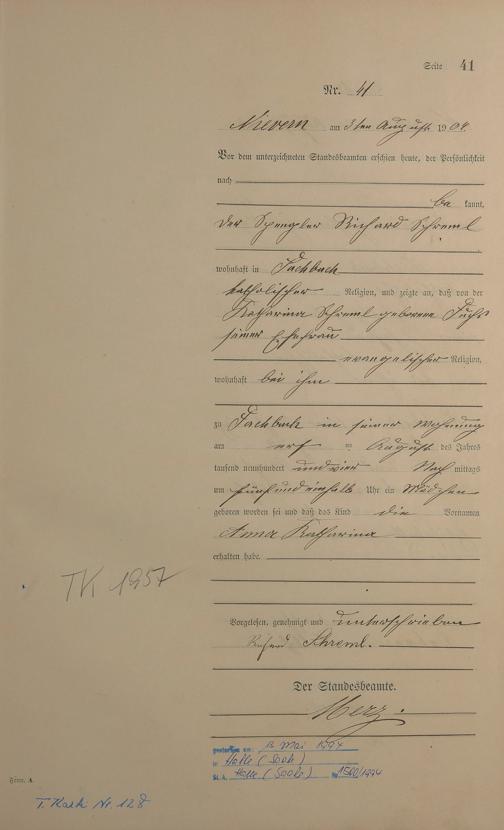 Seite 41
Nr. 41
Nievern am 3ten August 1904.
Vor dem unterzeichneten Standesbeamten erschien heute, der Persönlichkeit
nach
be kannt,
der Spengler Richard Schreml
wohnhaft in Fachbach
katholischer Religion, und zeigte an, daß von der
Katharina Schreml geborene Fuchs
seiner Ehefrau
evangelischer Religion,
wohnhaft bei ihm
zu Fachbach in seiner Wohnung
am ersten August des Jahres
tausend neunhundert und vier Nach mittags
um fünf und einhalb Uhr ein Mädchen
geboren worden sei und daß das Kind die Vornamen
Anna Katharina
erhalten habe.
TK 1957
Vorgelesen, genehmigt und unterschrieben
Richard Schreml.
Der Standesbeamte.
Merz.
gestorben am: Mai 1994
in Halle (Saale)
St. A. Halle (Saale) Nr. 1500/1994
Form. A.
T. Kath Nr. 128